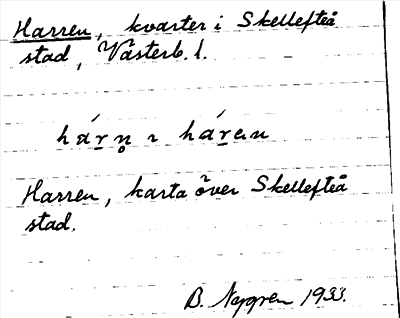 Harren, kvarter i Skellefteå
stad, Västerb. l.
hárn̥ ı háren
Harren, karta över Skellefteå
stad.
B. Nygren 1933.